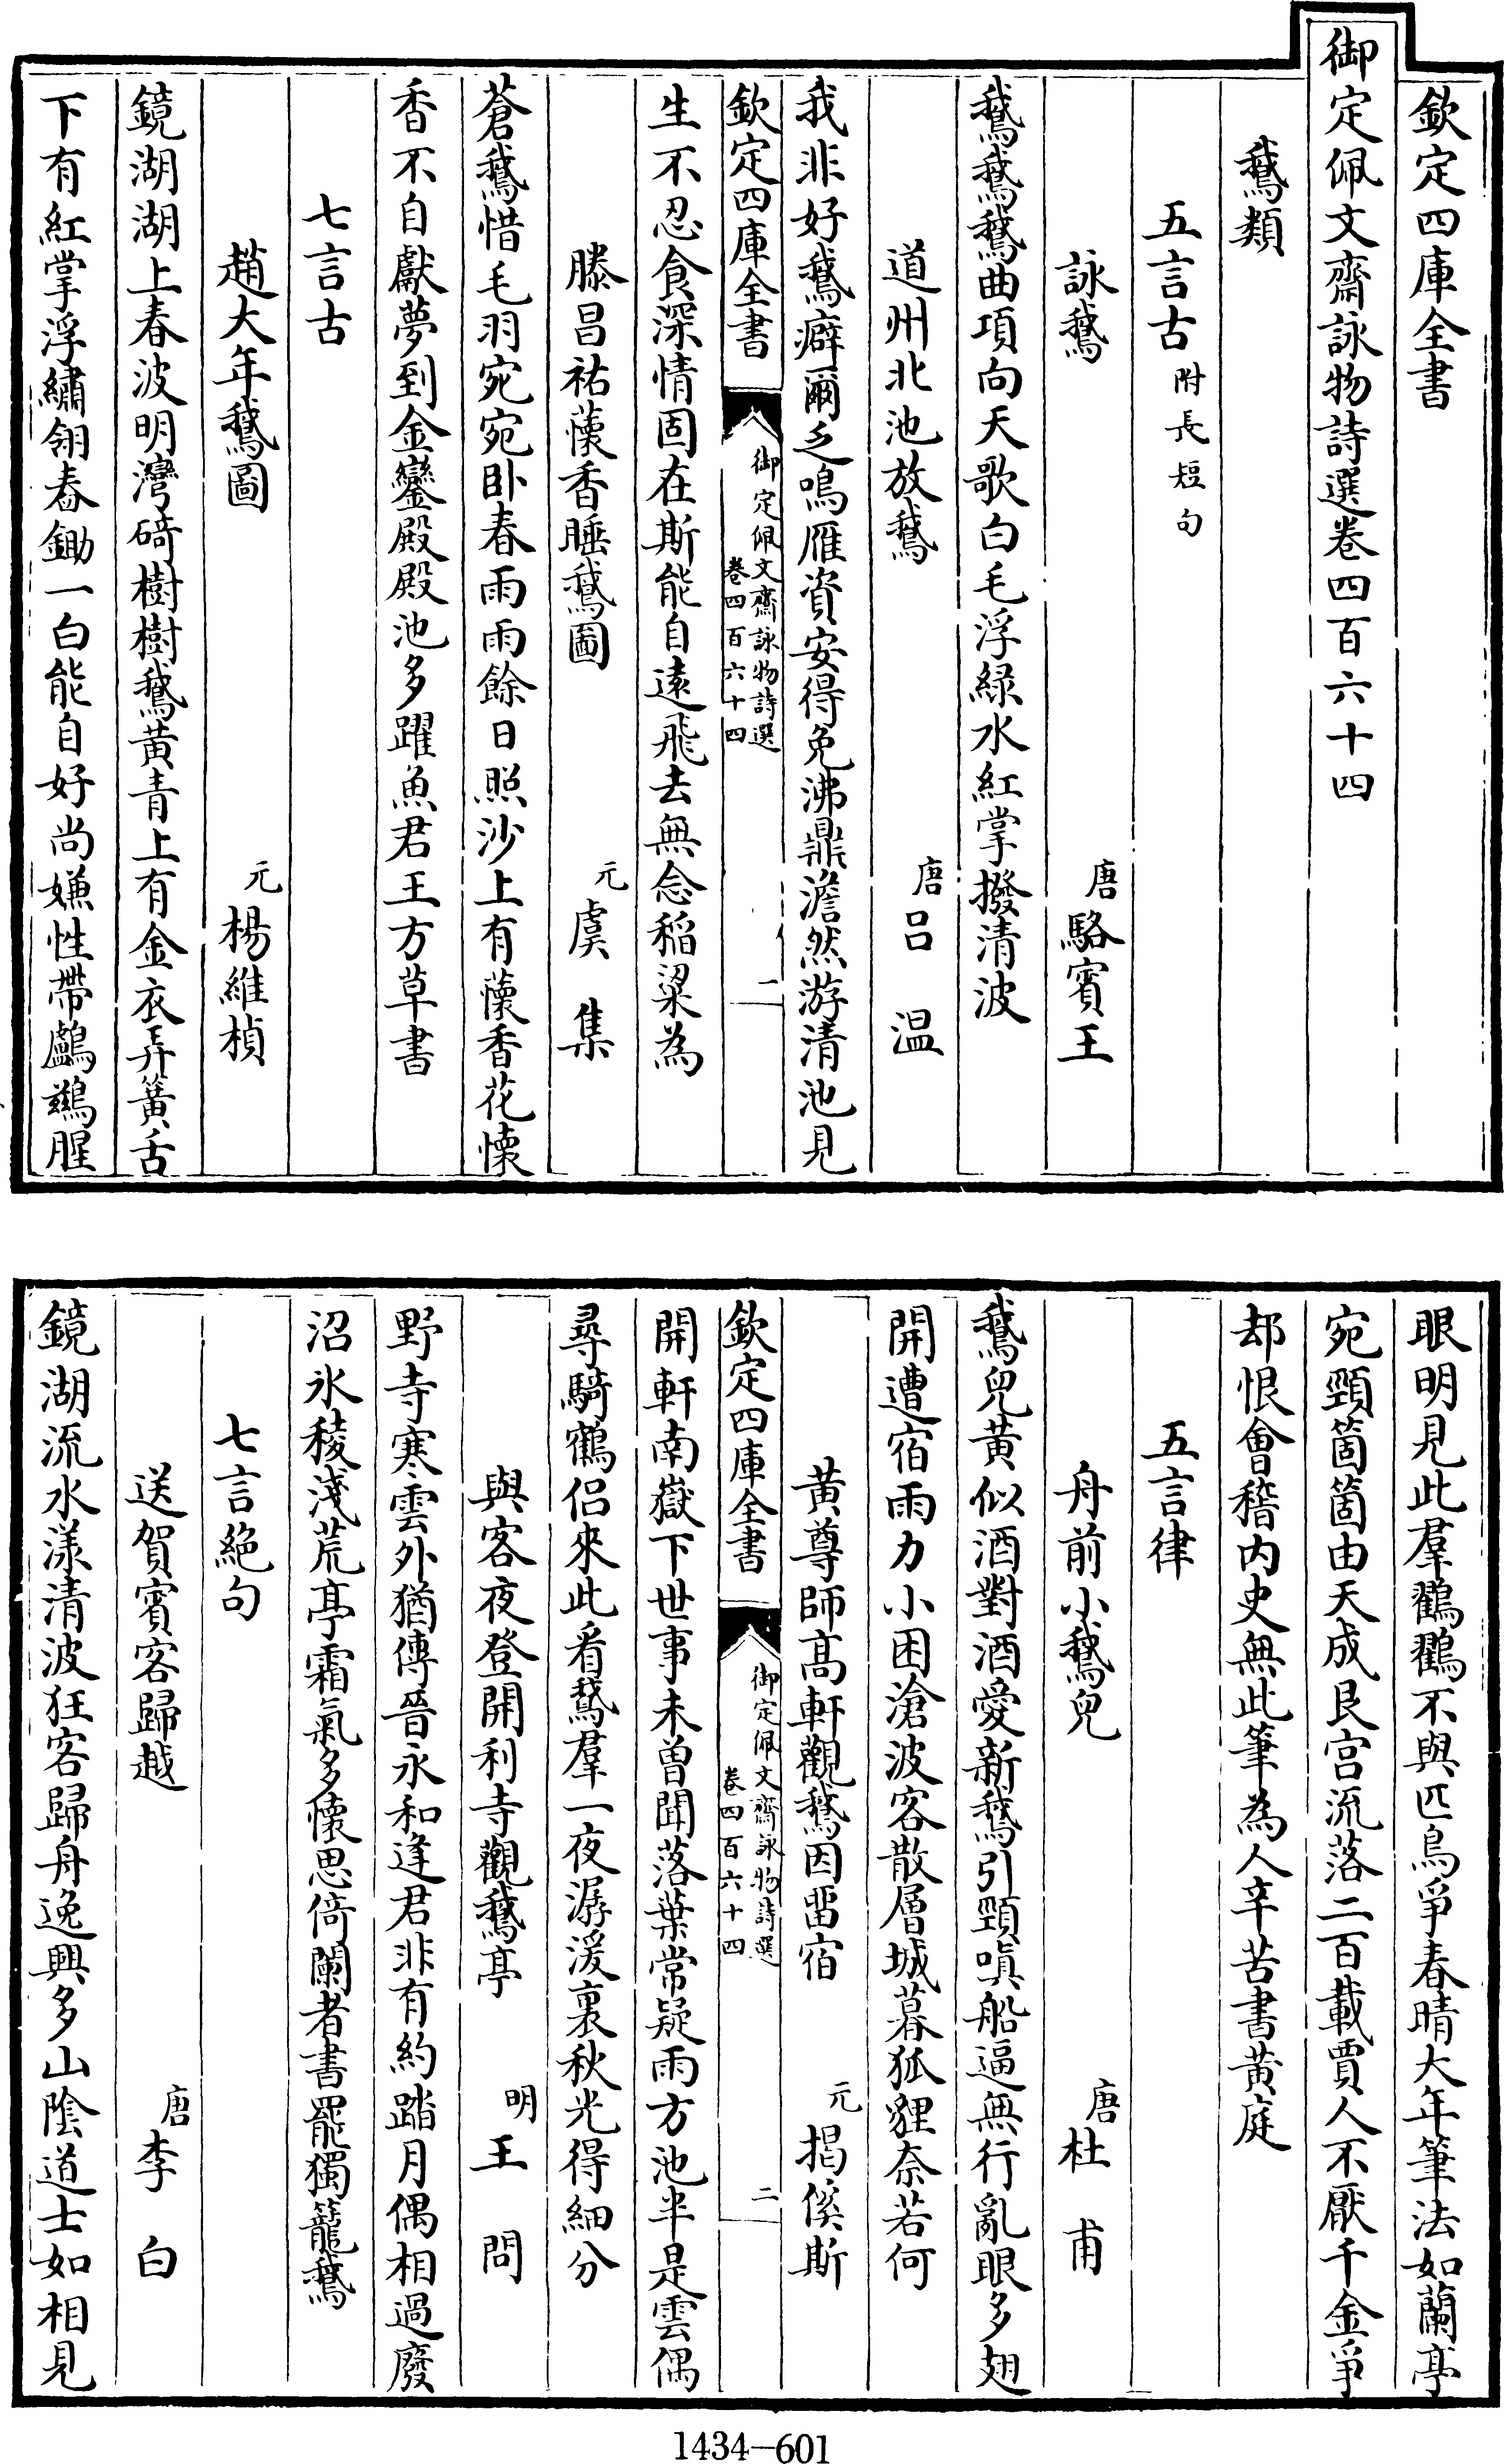 欽定四庫全書
御定佩文齋詠物詩選卷四百六十四
鵞類
五言古附長短句
詠鵞 唐 駱賓王
鵞鵞鵞曲項向天歌白毛浮緑水紅掌撥清波
道州北池放鵞 唐 吕温
我非好鵞癖爾乏鳴雁資安得免沸鼎澹然游清池見
欽定四庫全書 御定佩文齋詠物詩選 卷四百六十四 一
生不忍食深情固在斯能自逺飛去無念稻粱為
滕昌祐蘹香睡鵞圖 元 虞集
蒼鵞惜毛羽宛宛卧春雨雨餘日照沙上有蘹香花懐
香不自獻夢到金鑾殿殿池多躍魚君王方草書
七言古
趙大年鵞圖 元 楊維楨
鏡湖湖上春波明灣碕樹樹鵞黄青上有金衣弄簧舌
下有紅掌浮繡翎舂鋤一白能自好尚嫌性帶鸕鷀腥
眼明見此羣鸛鸛不與匹鳥爭春晴大年筆法如蘭亭
宛頸箇箇由天成艮宫流落二百載賈人不厭千金爭
却恨會稽内史無此筆為人辛苦書黄庭
五言律
舟前小鵞兒 唐 杜甫
鵞兒黄似酒對酒愛新鵞引頸嗔船逼無行亂眼多翅
開遭宿雨力小困滄波客散層城暮狐貍奈若何
黄尊師髙軒觀鵞因畱宿 元 揭傒斯
欽定四庫全書 御定佩文齋詠物詩選 卷四百六十四 二
開軒南嶽下世事未曽聞落葉常疑雨方池半是雲偶
尋騎鶴侣來此看鵞羣一夜潺湲裏秋光得細分
與客夜登開利寺觀鵞亭 明 王問
野寺寒雲外猶傳晉永和逢君非有約踏月偶相過廢
沼氷稜淺荒亭霜氣多懐思倚闌者書罷獨籠鵞
七言絶句
送賀賓客歸越 唐 李白
鏡湖流水漾清波狂客歸舟逸興多山隂道士如相見
1434-601